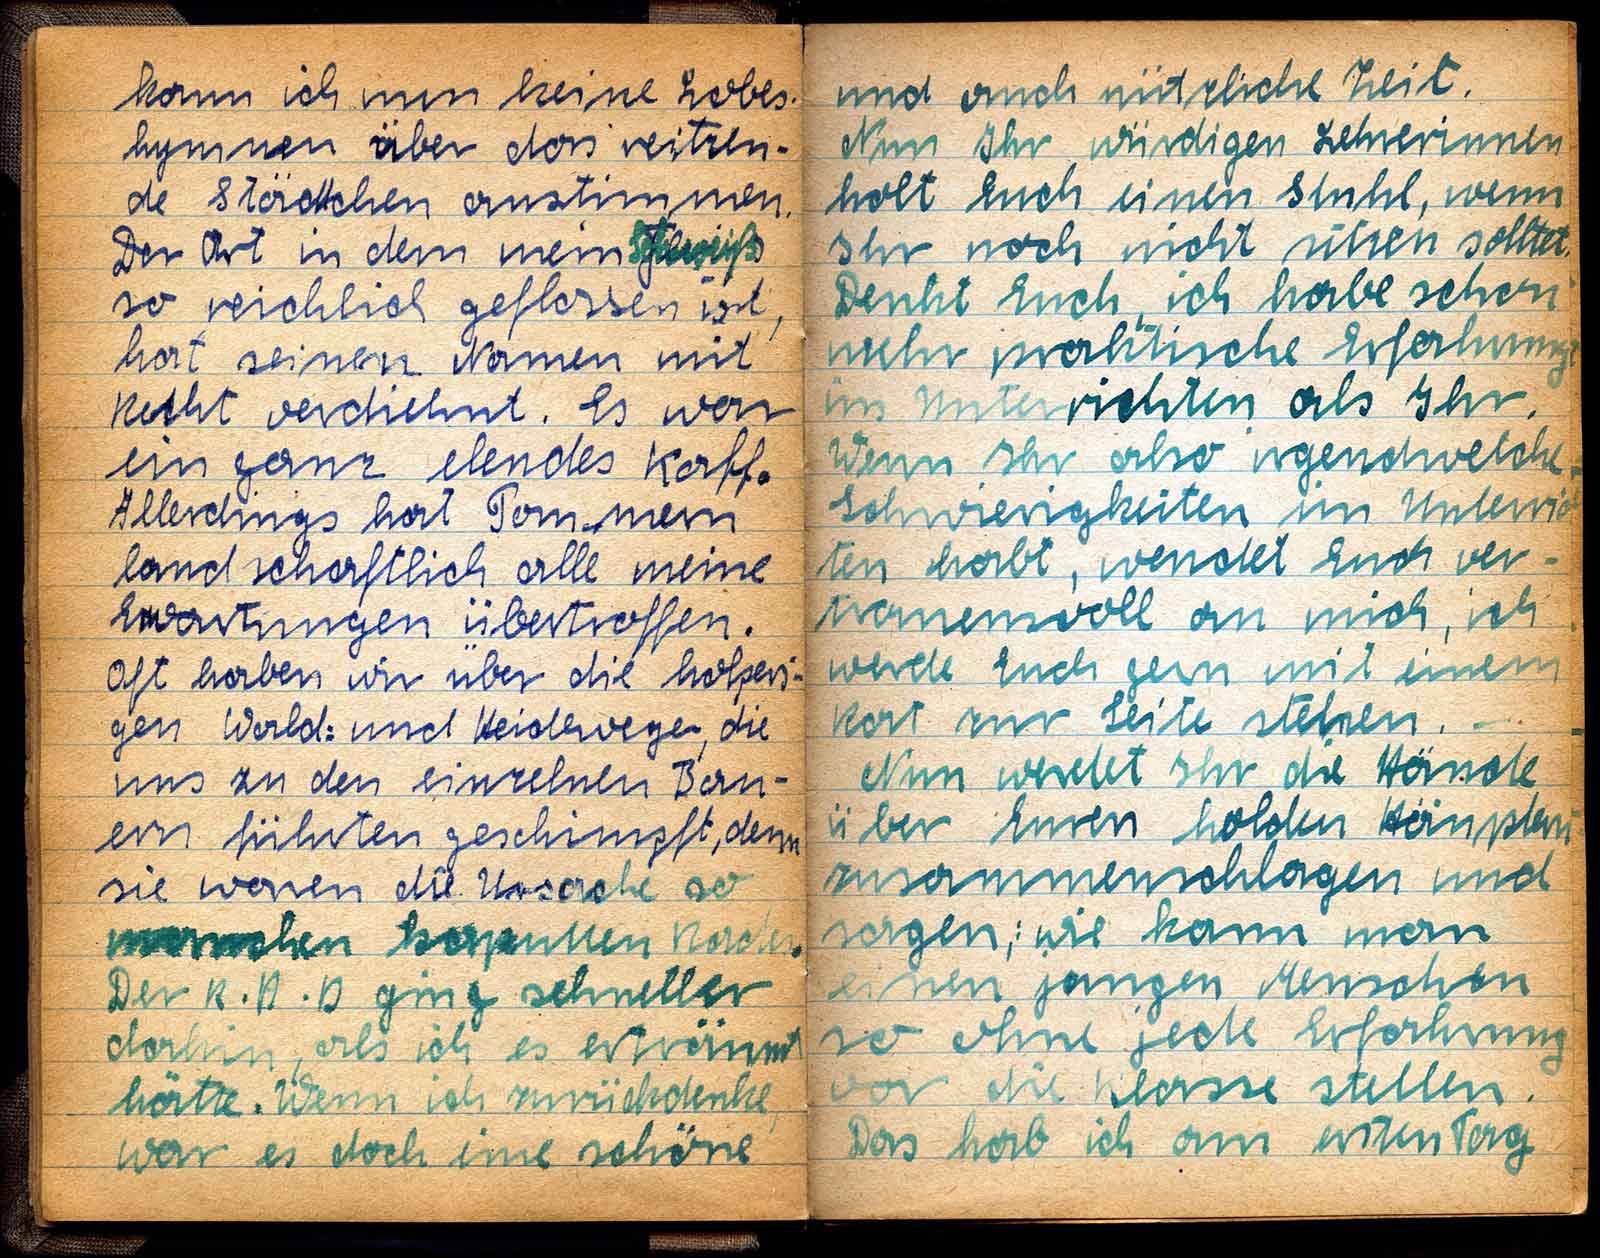 kann ich nun keine Lobes-
hymnen über das reitzen-
de Städtchen anstimmen.
Der Ort in dem mein Schweiß
so reichlich geflossen ist,
hat seinen Namen mit
Recht verdiehnt. Es war
ein ganz elendes Kaff.
Allerdings hat Pommern
landschaftlich alle meine
Erwartungen übertroffen.
Oft haben wir über die holperi-
gen Wald= und Heidewege, die
uns zu den einzelnen Bau-
ern führten geschimpft, denn
sie waren die Ursache so
manchen kaputten Rades.
Der K.A.D ging schneller
dahin, als ich es erträumt
hätte. Wenn ich zurückdenke,
war es doch eine schöne
und auch nützliche Zeit.
Nun Ihr würdigen Lehrerinnen
holt Euch einen Stuhl, wenn
Ihr noch nicht sitzen solltet.
Denkt Euch, ich habe schon
mehr praktische Erfahrunge
im Unterrichten als Ihr.
Wenn Ihr also irgendwelche
Schwierigkeiten im Unterrich
ten habt, wendet Euch ver-
trauensvoll an mich, ich
werde Euch gern mit einem
Rat zur Seite stehen. —
Nun werdet Ihr die Hände
über Euren holden Häuptern
zusammenschlagen und
sagen; wie kann man
einen jungen Menschen
so ohne jede Erfahrung
vor die Klasse stellen.
Das hab ich am ersten Tag